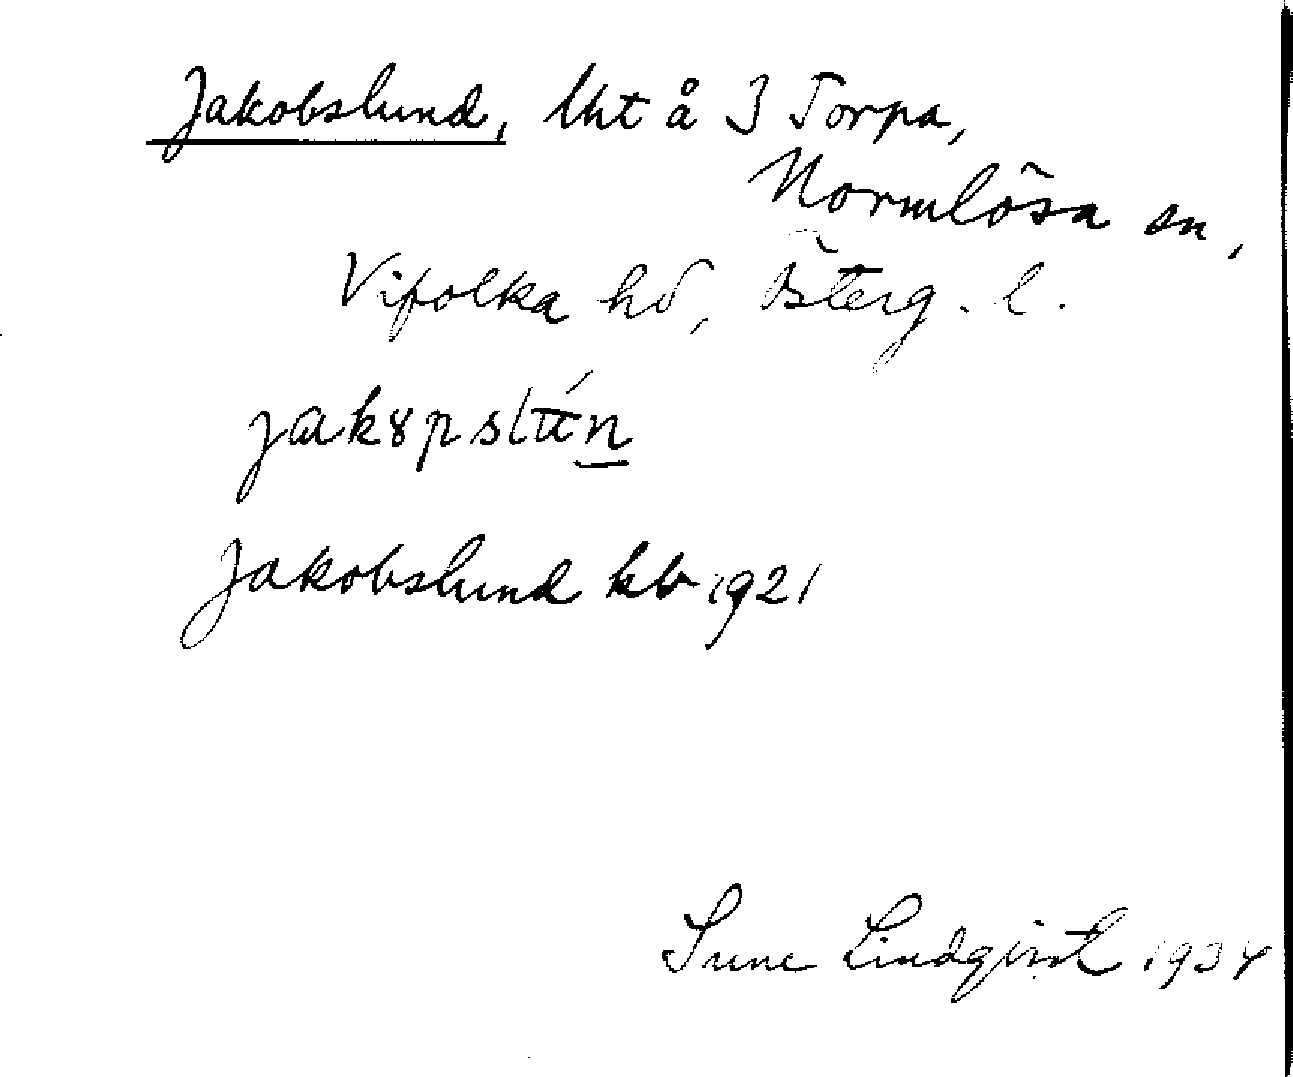 Jakobslund, lht å 3 Torpa,
Normlösa sn,
Vifolka hd, Österg. l.
jakɤpslun
Jakobslund kb 1921
Sune Lindqvist 1934